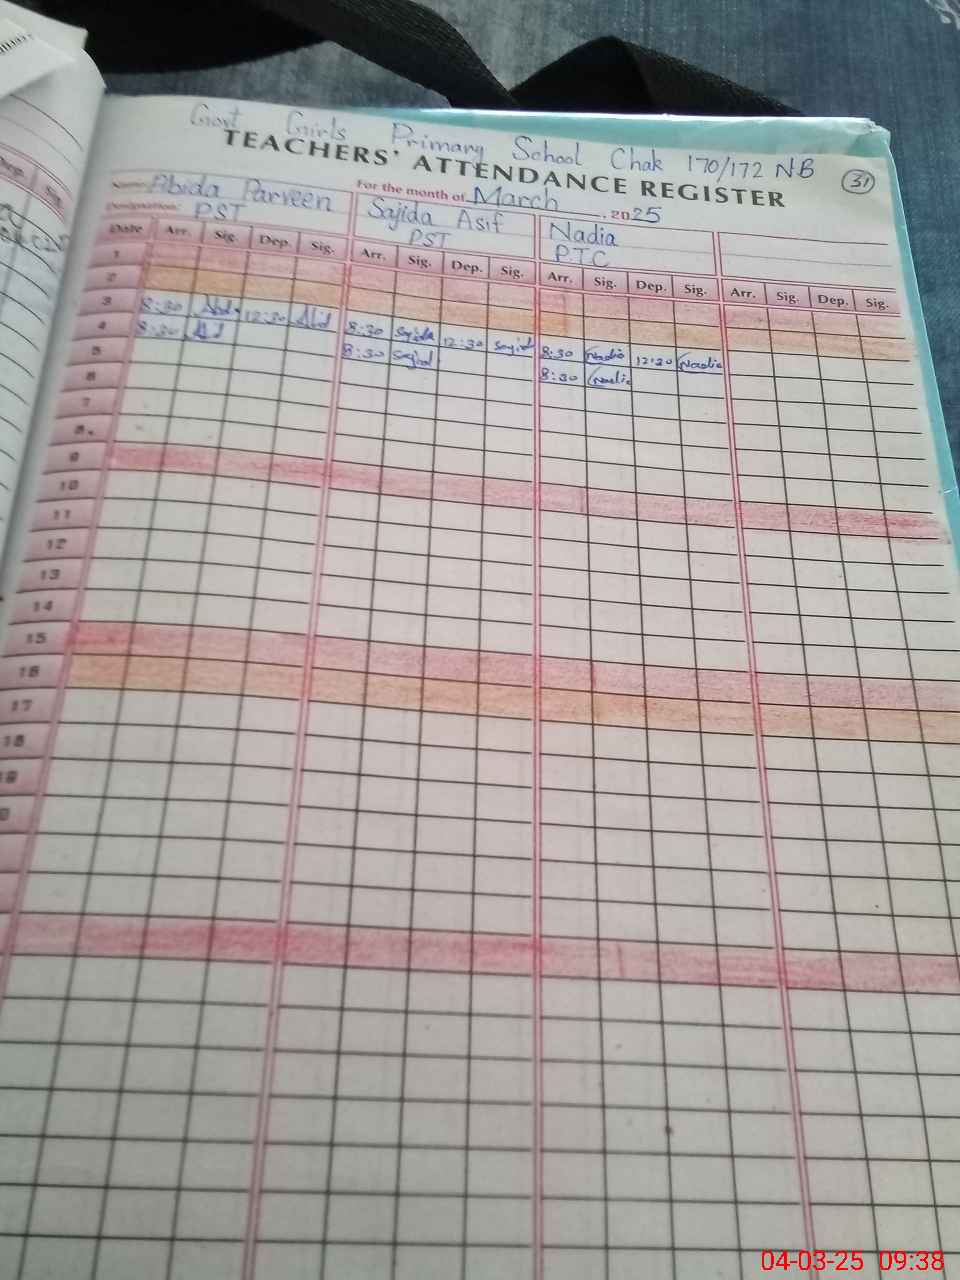 Govt Girls Primary School Chak 170/172 NB
TEACHERS' ATTENDANCE REGISTER
31
For the month of March, 2025
Name: Abida Parveen
Designation: PST
Sajida Asif
PST
Nadia
PTC
Date Arr. Sig. Dep. Sig. Arr. Sig. Dep. Sig. Arr. Sig. Dep. Sig. Arr. Sig. Dep. Sig.
1
2
3 8:30 Abd 12:30 Abid 8:30 Sajida 12:30 Sajid 8:30 Nadia 12:30 Nadia
4 8:30 Abid 8:30 Sajid 8:30 Nadia
5
6
7
8
9
10
11
12
13
14
15
16
17
18
19
0
04-03-25 09:38